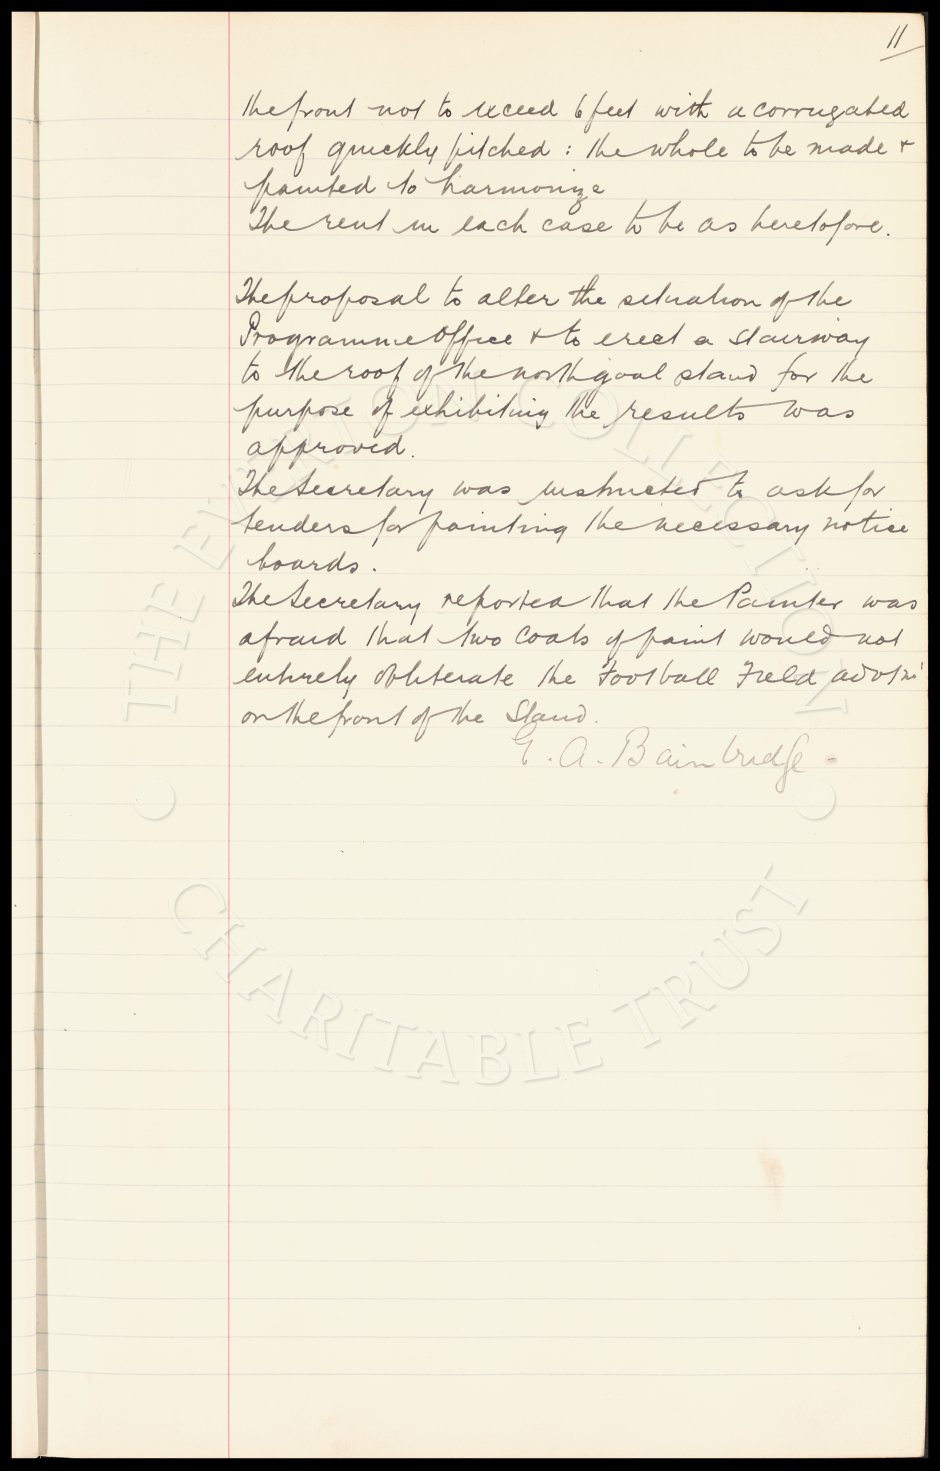 11
the front not to exceed 6 feet with a corrugated
roof quickly pitched : the whole to be made &
painted to harmonize
The rent in each case to be as heretofore.
The proposal to alter the situation of the
Programme Office & to erect a stairway
to the roof of the north goal stand for the
purpose of exhibiting the results was
approved.
The Secretary was instructed to ask for
tenders for painting the necessary notice
boards.
The Secretary reported that the Painter was
afraid that two coats of paint would not
entirely obliterate the Football Field
on the front of the Stand.
E. A. Bainbridge
THE EVERTON COLLECTION
CHARITABLE TRUST